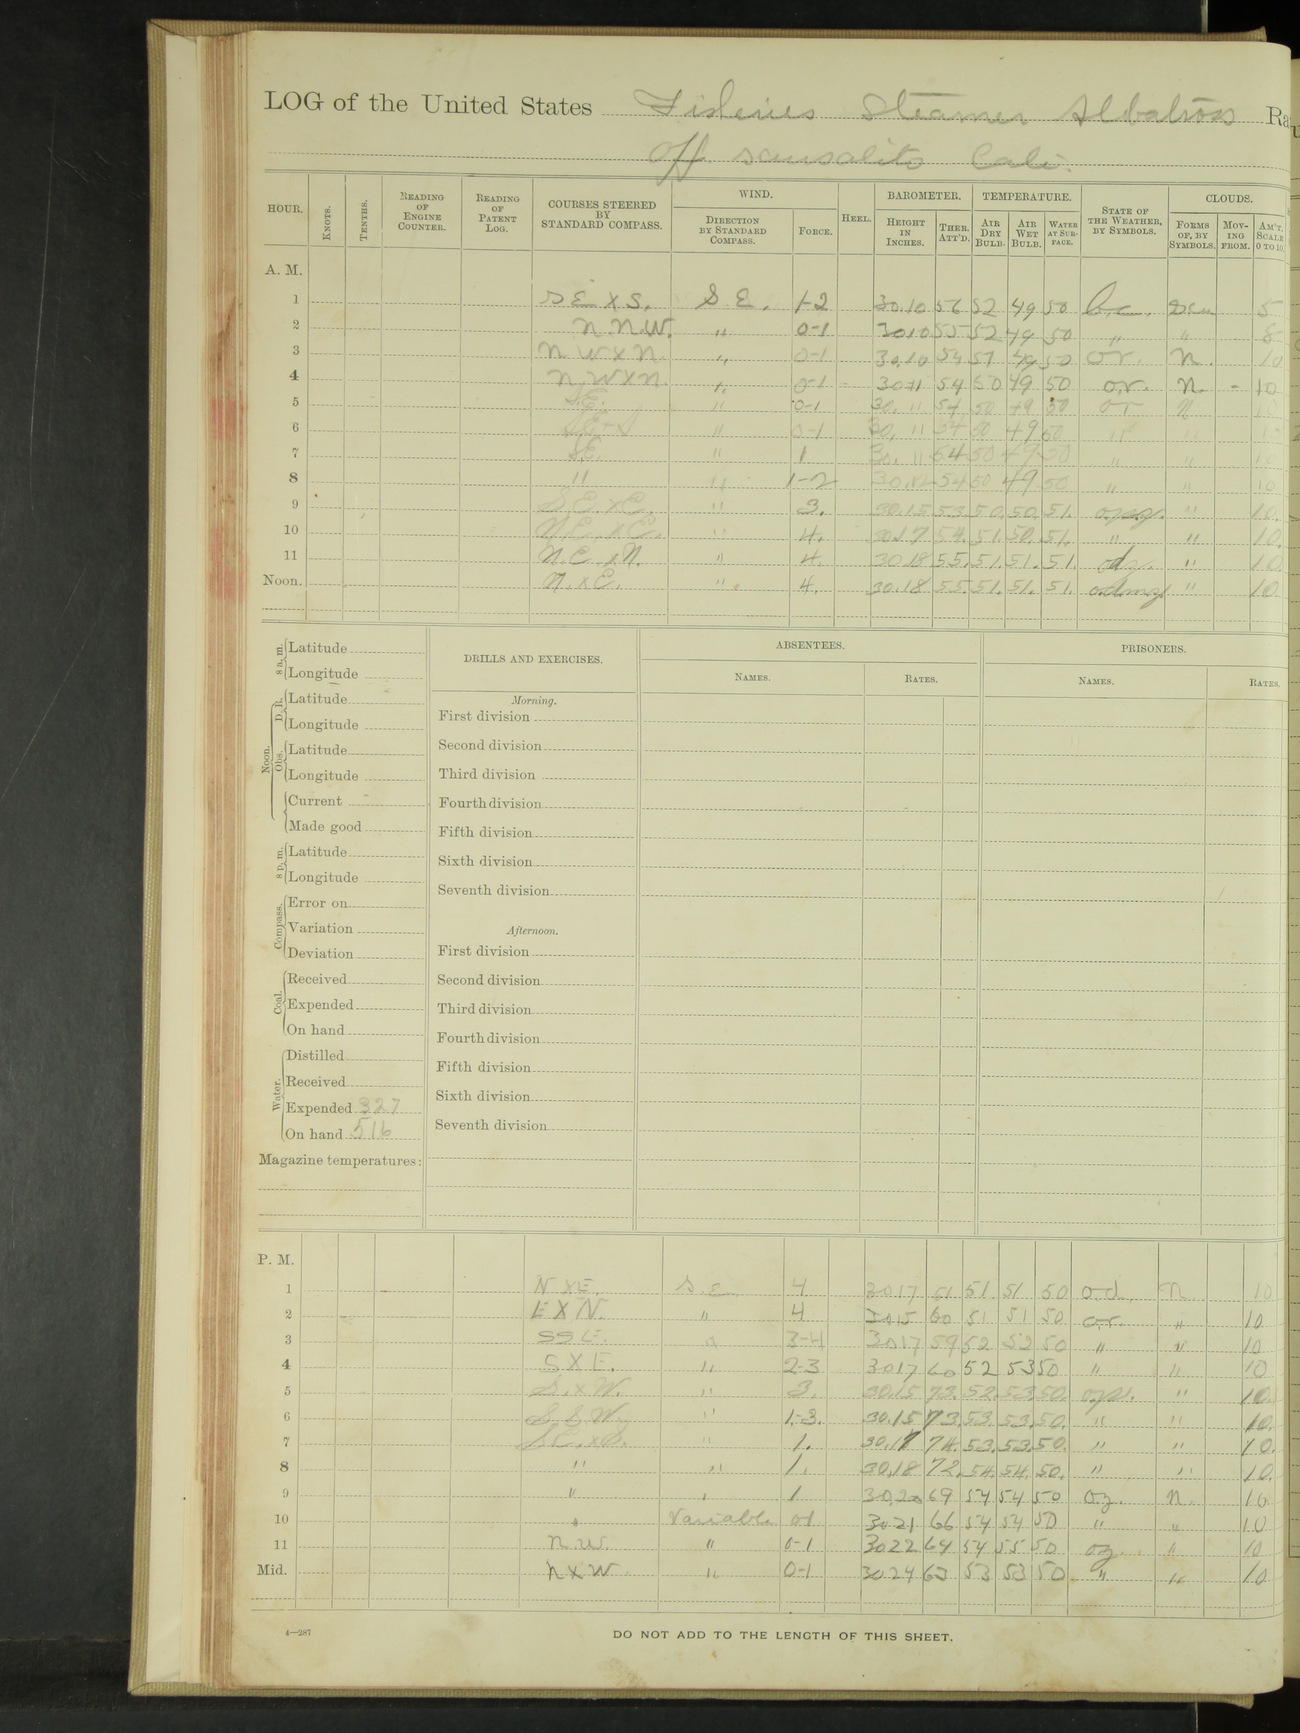 LOG of the United States Fisheries Steamer Albatross Ra
off Sausalito Cali.
HOUR. KNOTS. TENTHS. READING OF ENGINE COUNTER. READING OF PATENT LOG. COURSES STEERED BY STANDARD COMPASS. WIND. DIRECTION BY STANDARD COMPASS. FORCE. HEEL. BAROMETER. HEIGHT IN INCHES. THER. ATT'D. TEMPERATURE. AIR DRY BULB. AIR WET BULB. WATER AT SURFACE. STATE OF THE WEATHER, BY SYMBOLS. CLOUDS. FORMS OF, BY SYMBOLS. MOVING FROM. AM'T. SCALE 0 TO 10.
A. M.
1 SE x S. S E. 1-2 30.10 56 52 49 50 b.c. 5
2 N.N.W. " 0-1 30.10 55 52 49 50 " "
3 NW x N. " 0-1 30.10 54 51 49 50 or. N. 10
4 N.W x N. " 0-1 30 11 54 50 49 50 or. N. - 10
5 S.E. " 0-1 30. 11 54 50 49 50 or N 10
6 " 0-1 30. 11 54 50 49 50 " " 10
7 S.E. " 1 30. 11 54 50 49 50 " " 10
8 " " 1-2 30.12 54 50 49 50 " " 10
9 S.E. x E. " 3. 30.15 53. 50. 50. 51. " 10.
10 N.E. x E. " 4. 30.17 54. 51. 50. 51. " " 10.
11 N.E. x N. " 4. 30.18 55. 51. 51. 51. " 10.
Noon. N. x E. " 4. 30.18 55. 51. 51. 51. " 10.
8 a. m. Latitude
Longitude
Noon. D. R. Latitude
Longitude
Obs. Latitude
Longitude
Current
Made good
8 p. m. Latitude
Longitude
Compass. Error on
Variation
Deviation
Coal. Received
Expended
On hand
Water. Distilled
Received
Expended 327
On hand 516
Magazine temperatures:
DRILLS AND EXERCISES.
Morning.
First division
Second division
Third division
Fourth division
Fifth division
Sixth division
Seventh division
Afternoon.
First division
Second division
Third division
Fourth division
Fifth division
Sixth division
Seventh division
ABSENTEES.
NAMES. RATES.
PRISONERS.
NAMES. RATES.
P. M.
1 N x E. S.E. 4 30 17 61 51 51 50 o.d. N. 10
2 E x N. " 4 30 15 60 51 51 50 or. " 10
3 SSE. " 3-4 30 17 59 52 52 50 " " 10
4 S x E. " 2-3 30 17 60 52 53 50 " " 10
5 S. x W. " 3. 30.15 73. 52. 53. 50. " 10.
6 S.S.W. " 1-3. 30.15 73. 53. 53. 50. " " 10.
7 S.E. x S. " 1. 30.17 74. 53. 53. 50. " " 10.
8 " " 1. 30.18 72. 54. 54. 50. " " 10.
9 " " 1 30.20 69 54 54 50 oz. N. 10
10 " Variable 0-1 30 21 66 54 54 50 " " 10
11 N.W. " 0-1 30 22 64 54 55 50 oz " 10
Mid. N x W " 0-1 30 24 63 53 53 50 " " 10
4—287
DO NOT ADD TO THE LENGTH OF THIS SHEET.